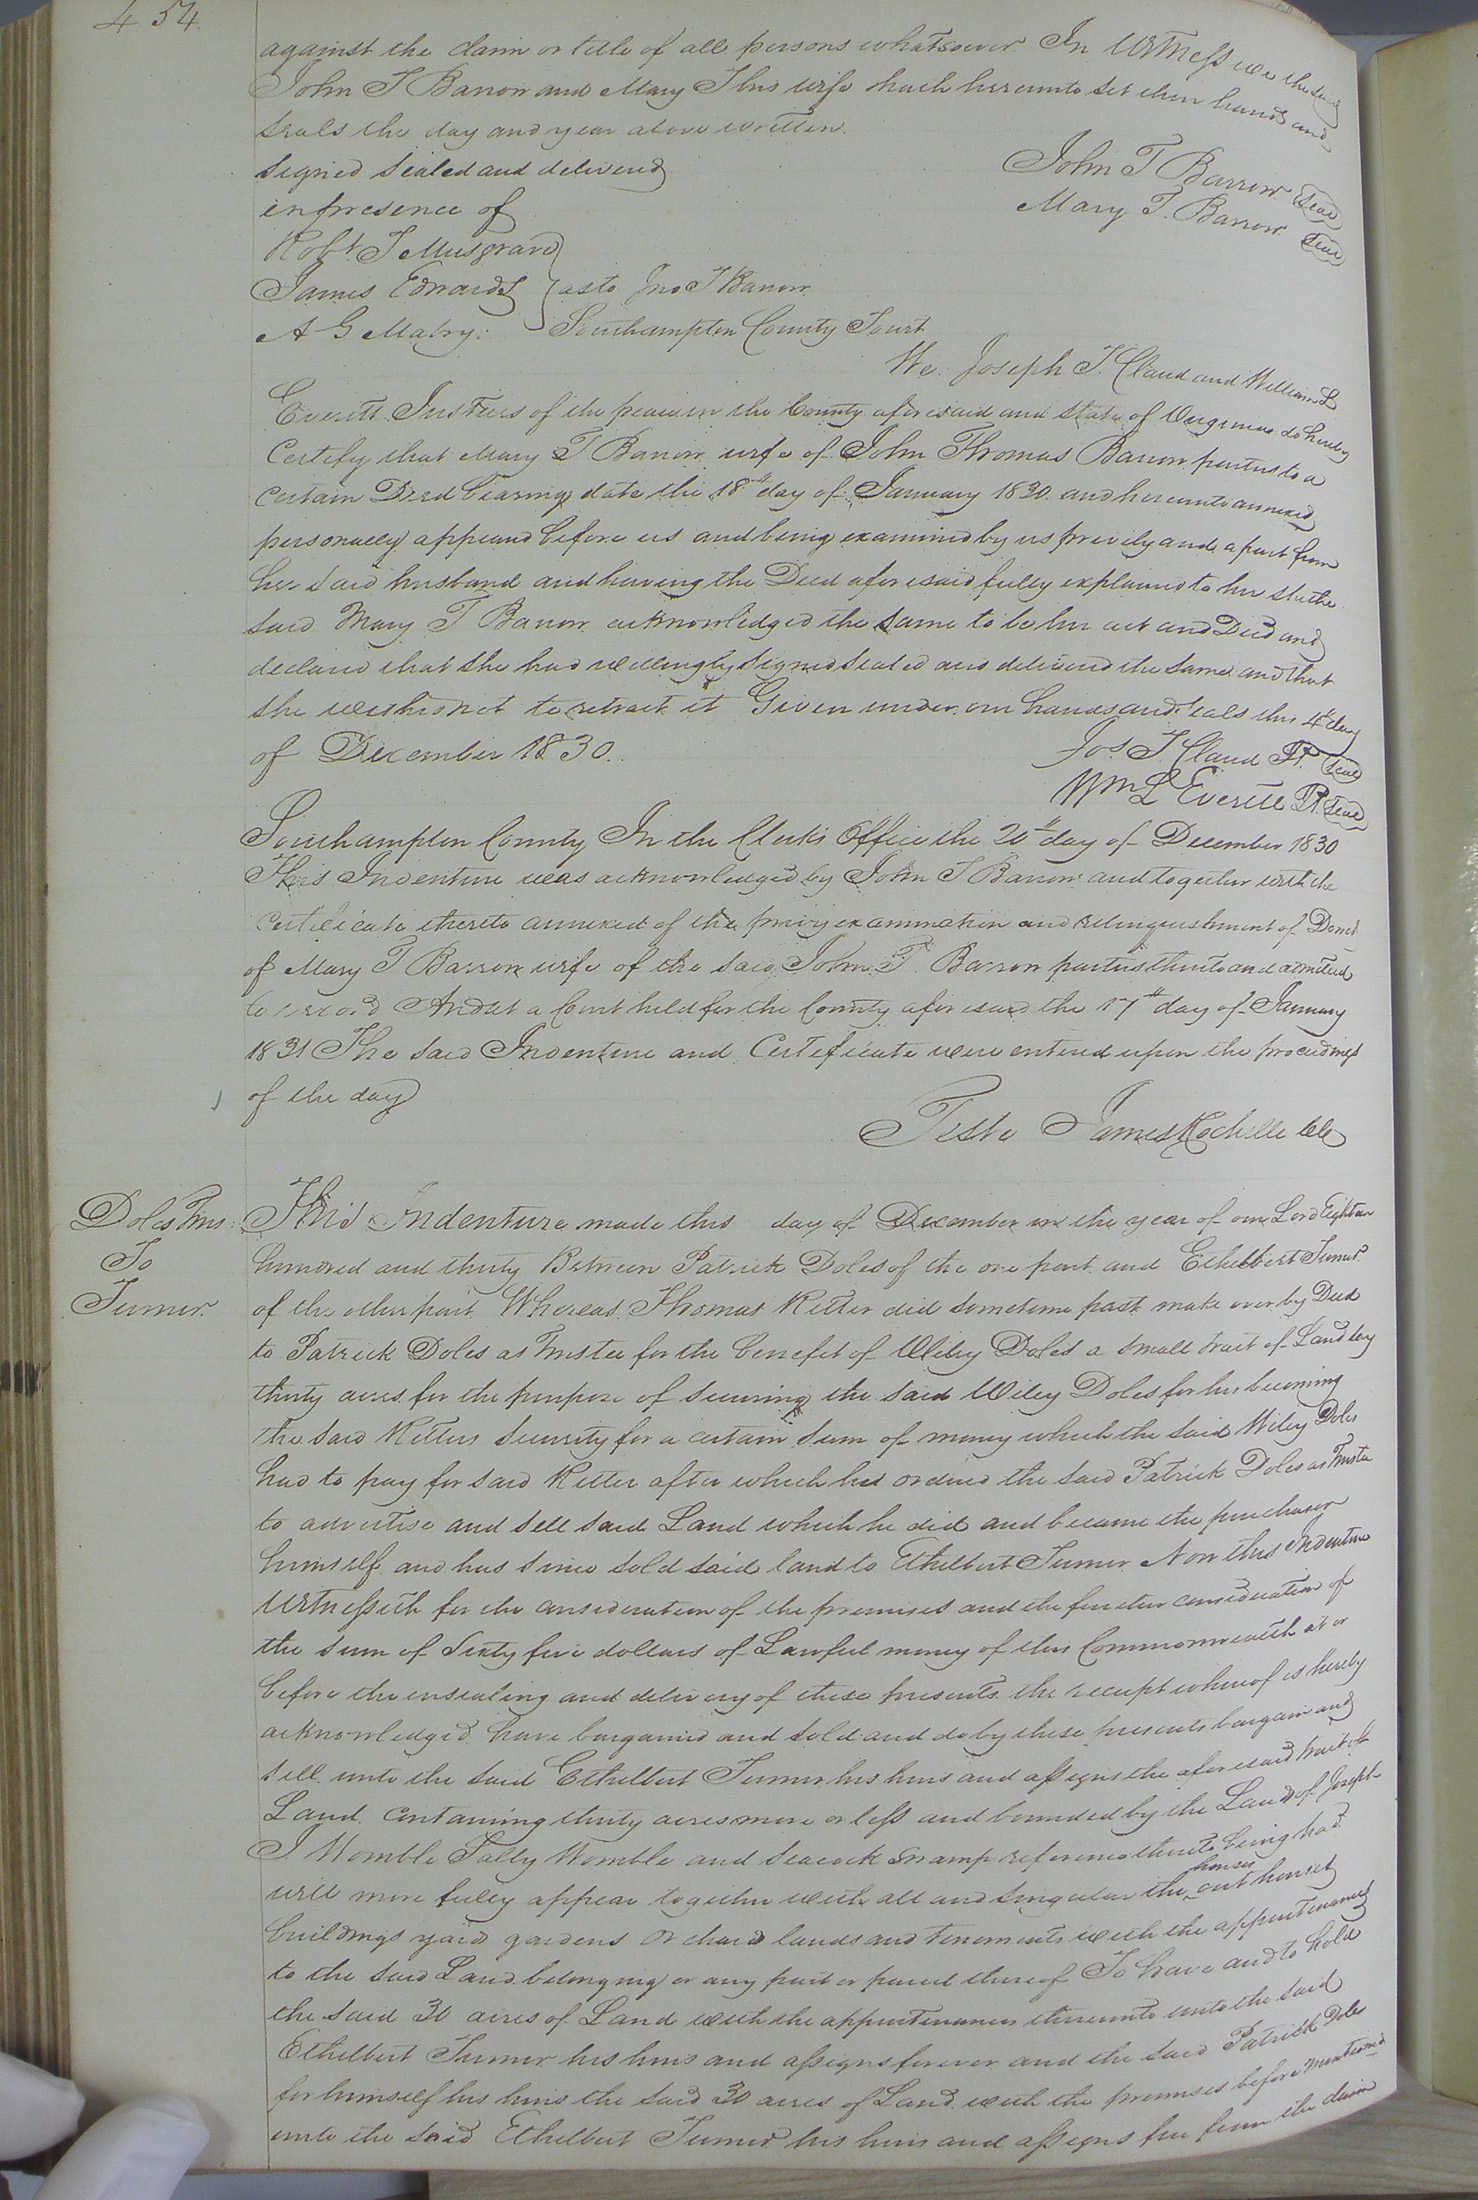 454.
against the claim or title of all persons whatsoever. In Witness we the said
John T Barrow and Mary T his wife hath hereunto set their hands and
seals the day and year above written.
Signed Sealed and delivered
in presence of
John T Barrow Seal
Mary T. Barrow Seal
Robt T Musgrave
James Edwards } as to Jno T Barrow
A G Mabry.
Southampton County Court
We. Joseph T. Claud and William L
Everett Justices of the peace in the County aforesaid and State of Virginia do hereby
Certify that Mary T Barrow wife of John Thomas Barrow parties to a
Certain Deed bearing date the 18th day of January 1830. and hereunto annexed
personally appeared before us and being examined by us privily and apart from
her said husband and having the Deed aforesaid fully explained to her she the
said Mary T Barrow acknowledged the same to be her act and Deed and
declared that she had willingly signed sealed and delivered the same and that
she wished not to retract it Given under our hands and seals this 4th day
of December 1830.
Jos. T. Claud Seal
Wm L Everett Seal
Southampton County In the Clerks Office the 20th day of December 1830
This Indenture was acknowledged by John T Barrow and together with the
Certificate thereto annexed of the privy examination and relinquishment of Dower
of Mary T Barrow wife of the said John T. Barrow parties thereto and admitted
to record And at a Court held for the County aforesaid the 17th day of January
1831 The said Indenture and Certificate were entered upon the proceedings
of the day
Teste James Rochelle Clk
Doles Trus:
To
Turner.
This Indenture made this day of December in the year of our Lord Eighteen
hundred and thirty Between Patrick Doles of the one part and Ethelbert Turner
of the other part Whereas Thomas Kitter did sometime past make over by Deed
to Patrick Doles as Trustee for the benefit of Wiley Doles a small tract of Land say
thirty acres for the purpose of securing the said Wiley Doles for his becoming
the said Kitters security for a certain sum of money which the said Wiley Doles
had to pay for said Kitter after which he ordered the said Patrick Doles as Trustee
to advertise and sell said Land which he did and became the purchaser
himself and has since sold said land to Ethelbert Turner Now this Indenture
Witnesseth for the consideration of the premises and the further consideration of
the sum of Sixty five dollars of Lawful money of this Commonwealth at or
before the ensealing and delivery of these presents the receipt whereof is hereby
acknowledged have bargained and sold and do by these presents bargain and
sell unto the said Ethelbert Turner his heirs and assigns the aforesaid tract of
Land. containing thirty acres more or less and bounded by the Lands of Joseph
J Womble Sally Womble and Seacock Swamp reference thereto being had
will more fully appear together with all and singular the houses out houses
buildings yard gardens Orchard lands and tenements with the appurtenances
to the said Land belonging or any part or parcel thereof To have and to hold
the said 30 acres of Land with the appurtenances thereunto unto the said
Ethelbert Turner his heirs and assigns forever and the said Patrick Doles
for himself his heirs the said 30 acres of Land with the premises before mentioned
unto the said Ethelbert Turner his heirs and assigns free from the claim